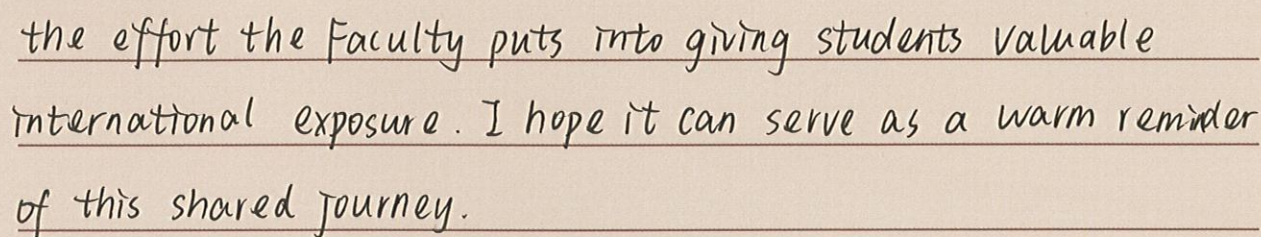 the effort the Faculty puts into giving students valuable
international exposure. I hope it can serve as a warm reminder
of this shared journey.